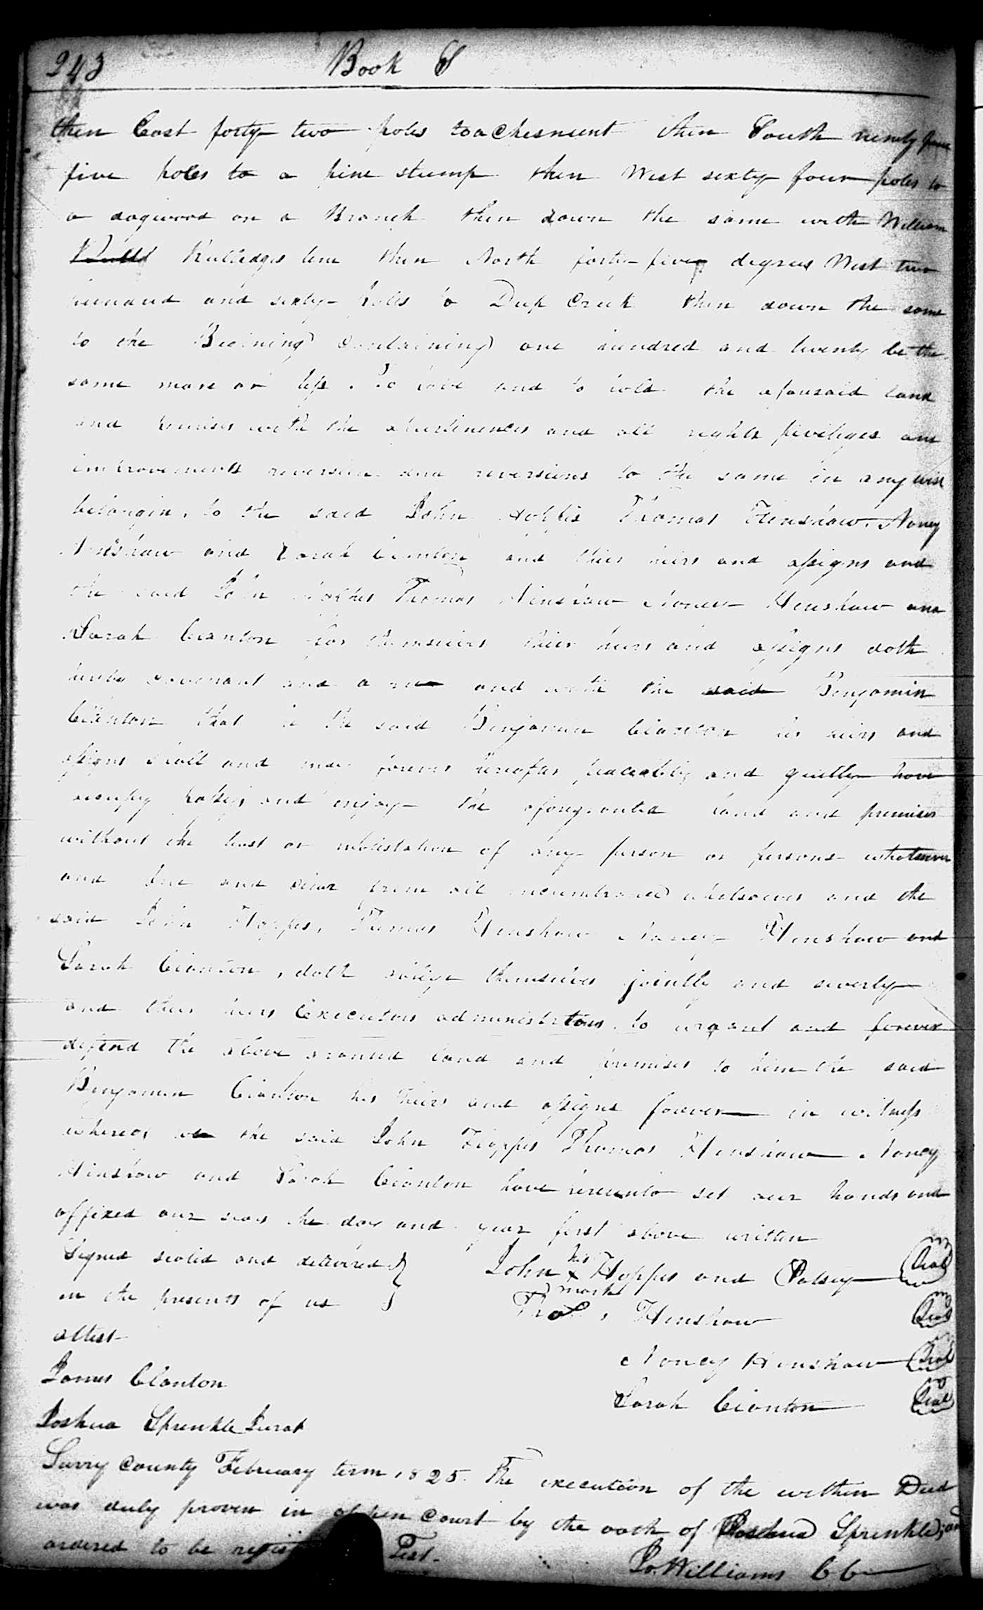 243 Book S
then East forty two poles to a Chesneunt then South ninety five
five poles to a pine stump then West sixty four poles to
a dogwood on a Branch then down the same with William
Rutledges line then North forty five degrees West two
hundred and sixty poles to Deep Creek then down the same
to the Begining Containing one hundred and twenty be the
same more or less. To have and to hold the aforesaid land
and premises with the apurtinences and all rights priveliges and
improvements reversion and reversions to the same in any wise
belongin, to the said John Hoppes Thomas Hinshaw, Nancy
Hinshaw and Sarah Clanton and their heirs and assigns and
the said John Hoppes Thomas Hinshaw Nancy Hinshaw and
Sarah Clanton for themselves their heirs and assigns doth
hereby covenant and and with the said Benjamin
Clanton that he the said Benjamin Clanton his heirs and
assigns shall and may forever hereafter peaceably and quietly have
occupy and enjoy the aforegranted land and premises
without the least or molistation of any person or persons whatsoever
and free and clear from all incumbrance whatsoever and the
said John Hoppes, Thomas Hinshaw Nancy Hinshaw and
Sarah Clanton, doth oblige themselves jointly and severly
and their heirs Executors administrtous, to warant and forever
defend the above granted land and premises to him the said
Benjamin Clanton his heirs and assigns forever in witness
whereof we the said John Hoppes Thomas Hinshaw Nancy
Hinshaw and Sarah Clanton have hereunto set our hands and
affixed our seals the day and year first above written
Signed sealed and delivered } John his x mark Hoppes and Patsey Seal
in the presents of us } Thos, Hinshaw Seal
attest
Nancy Hinshaw Seal
James Clanton
Sarah Clanton Seal
Joshua Sprinkle Jurat
Surry County February term 1825. The execution of the within Deed
was duly proven in oppen Court by the oath of Joshua Sprinkle, and
ordered to be Test.
Jo. Williams CC